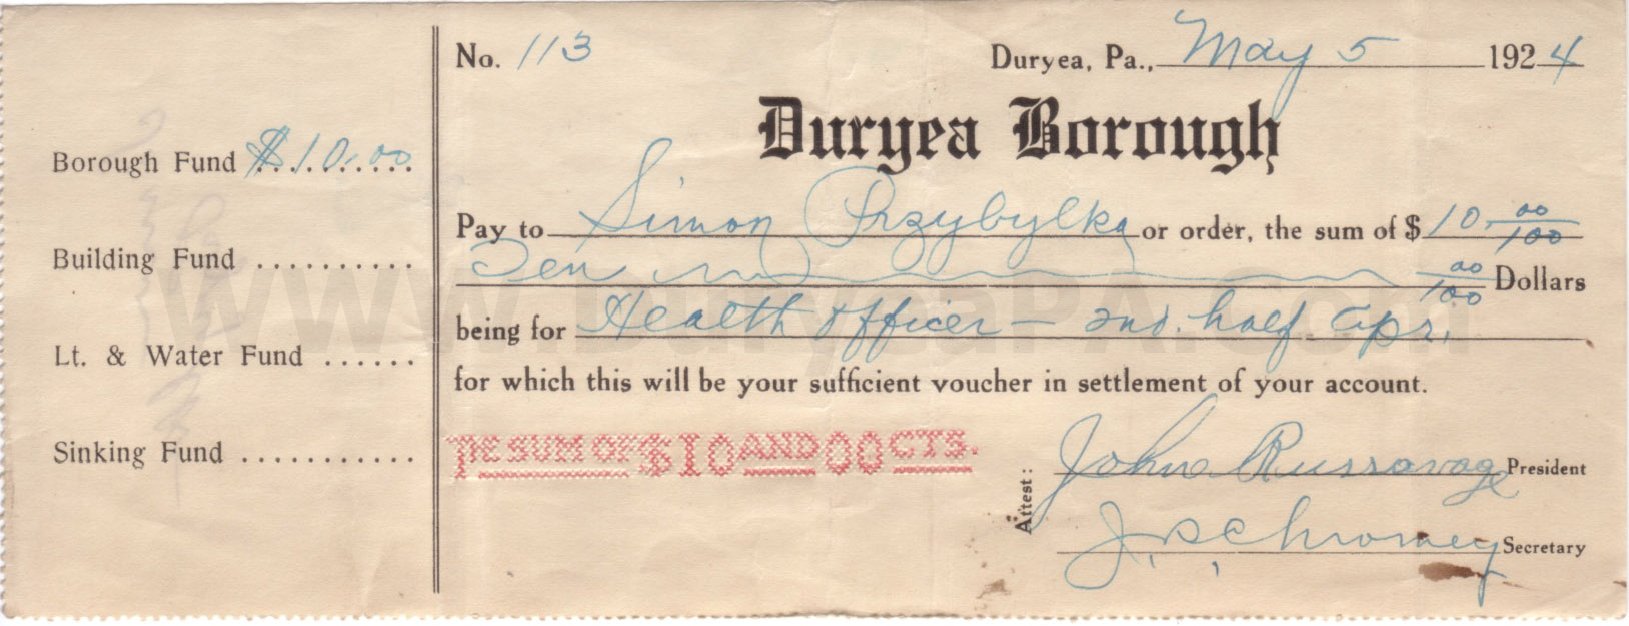 No. 113
Duryea, Pa., May 5 1924
Duryea Borough
Borough Fund $10.00
Pay to Simon Przybylka or order, the sum of $10 00/100
Building Fund ..........
Ten 00/100 Dollars
being for Health Officer - 2nd. half Apr.
Lt. & Water Fund ......
for which this will be your sufficient voucher in settlement of your account.
THE SUM OF $10 AND 00 CTS.
Sinking Fund ...........
Attest:
John Russavage President
J. P. Chromey Secretary
www.DuryeaPA.com